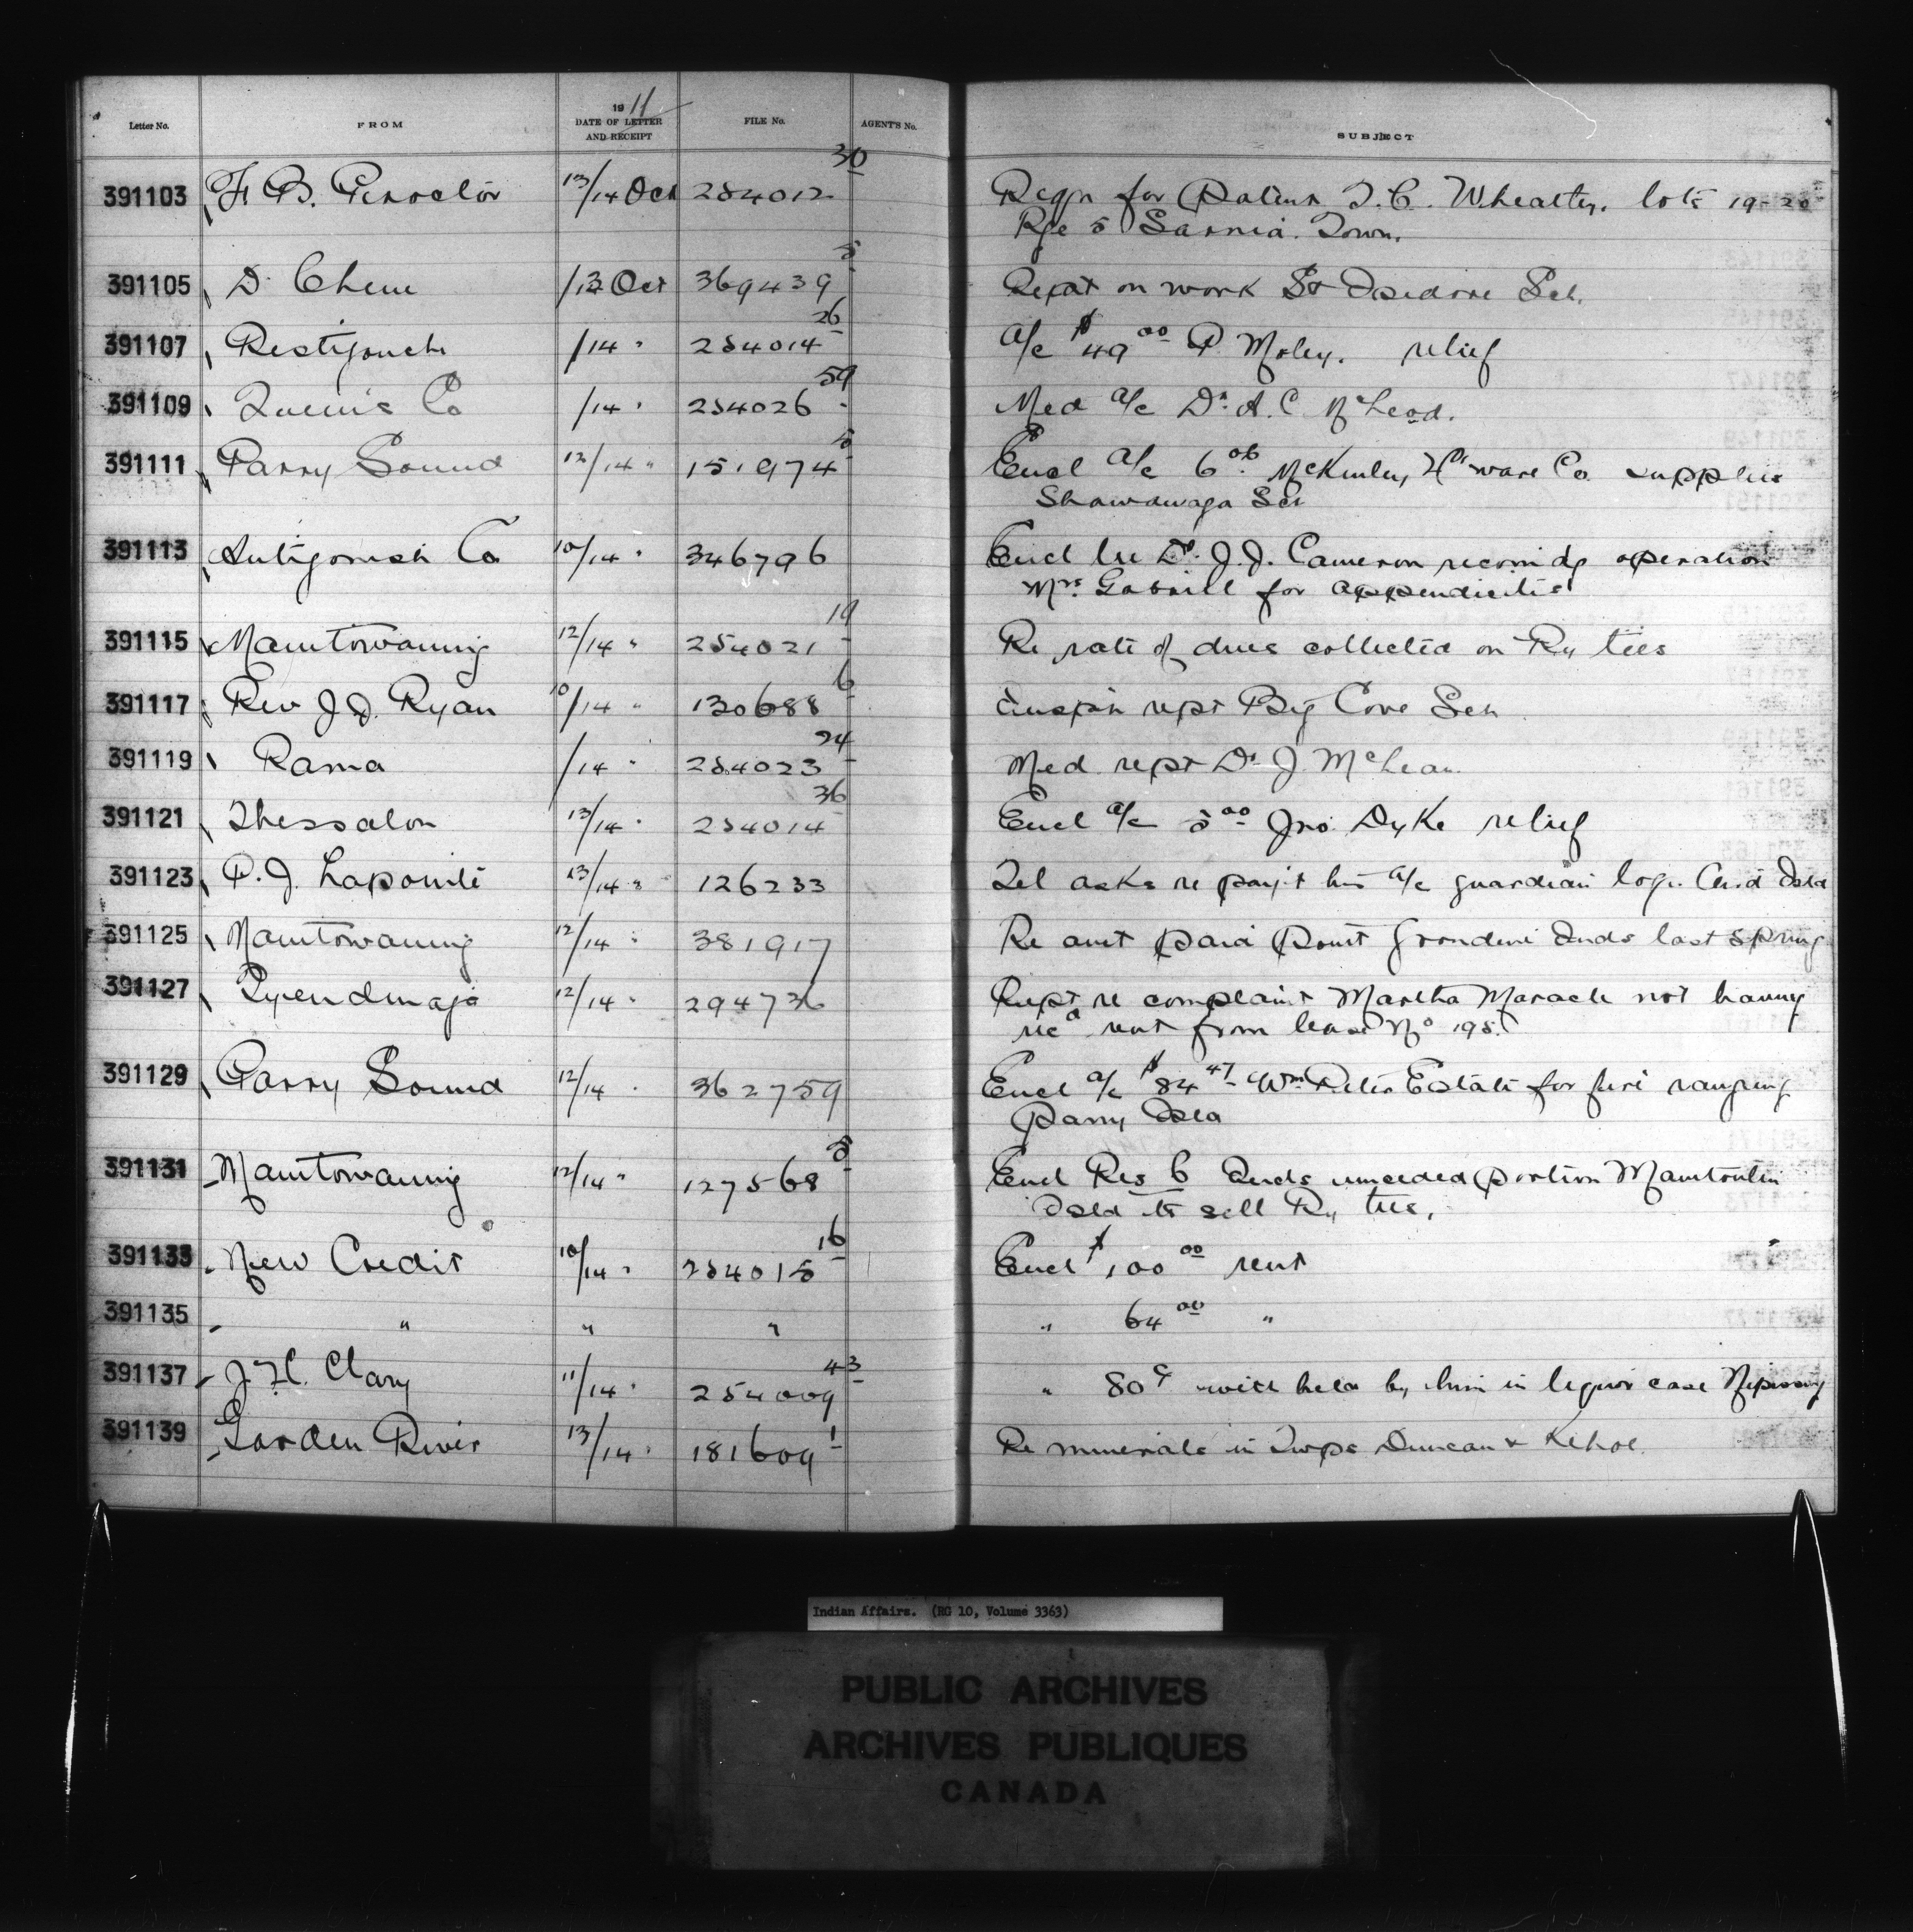 Letter No. FROM 1911 DATE OF LETTER AND RECEIPT FILE No. AGENT'S No. SUBJECT
391103 F. B. Proctor 13/14 Oct 254012 30 Regn for Patent T. C. Wheatley. lots 19-20
Rge 5 Sarnia Town.
391105 D. Chene /13 Oct 369439 5 Rept on work St Isidore Sch.
391107 Restigouche /14 " 254014 26 a/c $49 00 P. Moley. relief
391109 Queens Co /14 " 254026 59 Med a/c Dr. A. C. McLeod.
391111 Parry Sound 12/14 " 151974 5 Encl a/c 6 06 McKinley Hdware Co. supplies
Shawanaga Sch
391113 Antigonish Co 10/14 " 346796 Encl lre Dr. J. J. Cameron recomdg operation
Mrs. Gabriell for appendicitis
391115 Manitowaning 12/14 " 254021 19 Re rate of dues collected on Ry ties
391117 Rev J. D. Ryan 10/14 " 130688 6 Inspn rept Big Cove Sch
391119 Rama /14 " 254023 24 Med rept Dr J. McLean
391121 Thessalon 13/14 " 254014 36 Encl a/c 5 00 Jno. Dyke relief
391123 P. J. Lapointe 13/14 " 126233 Tel asks re payt his a/c guardian logs Isld
391125 Manitowaning 12/14 " 381917 Re amt paid Point Grondine Inds last spring
391127 Tyendinaga 12/14 " 294736 Rept re complaint Martha Maracle not having
recd rent from lease No 195.
391129 Parry Sound 12/14 " 362759 Encl a/c $84 47 Wm Peter Estate for fire ranging
Parry Isld
391131 Manitowaning 12/14 " 127568 5 Encl Res b Inds unceded portion Manitoulin
Isld to sell Ry ties.
391133 New Credit 10/14 " 254015 16 Encl $100 00 rent
391135 " " " " 64 00 "
391137 J. H. Clary 11/14 " 254009 43 " 80 c with held by him in liquor case Nipissing
391139 Garden River 13/14 " 181609 1 Re minerals in Twps Duncan & Kehoe
Indian Affairs. (RG 10, Volume 3363)
PUBLIC ARCHIVES
ARCHIVES PUBLIQUES
CANADA